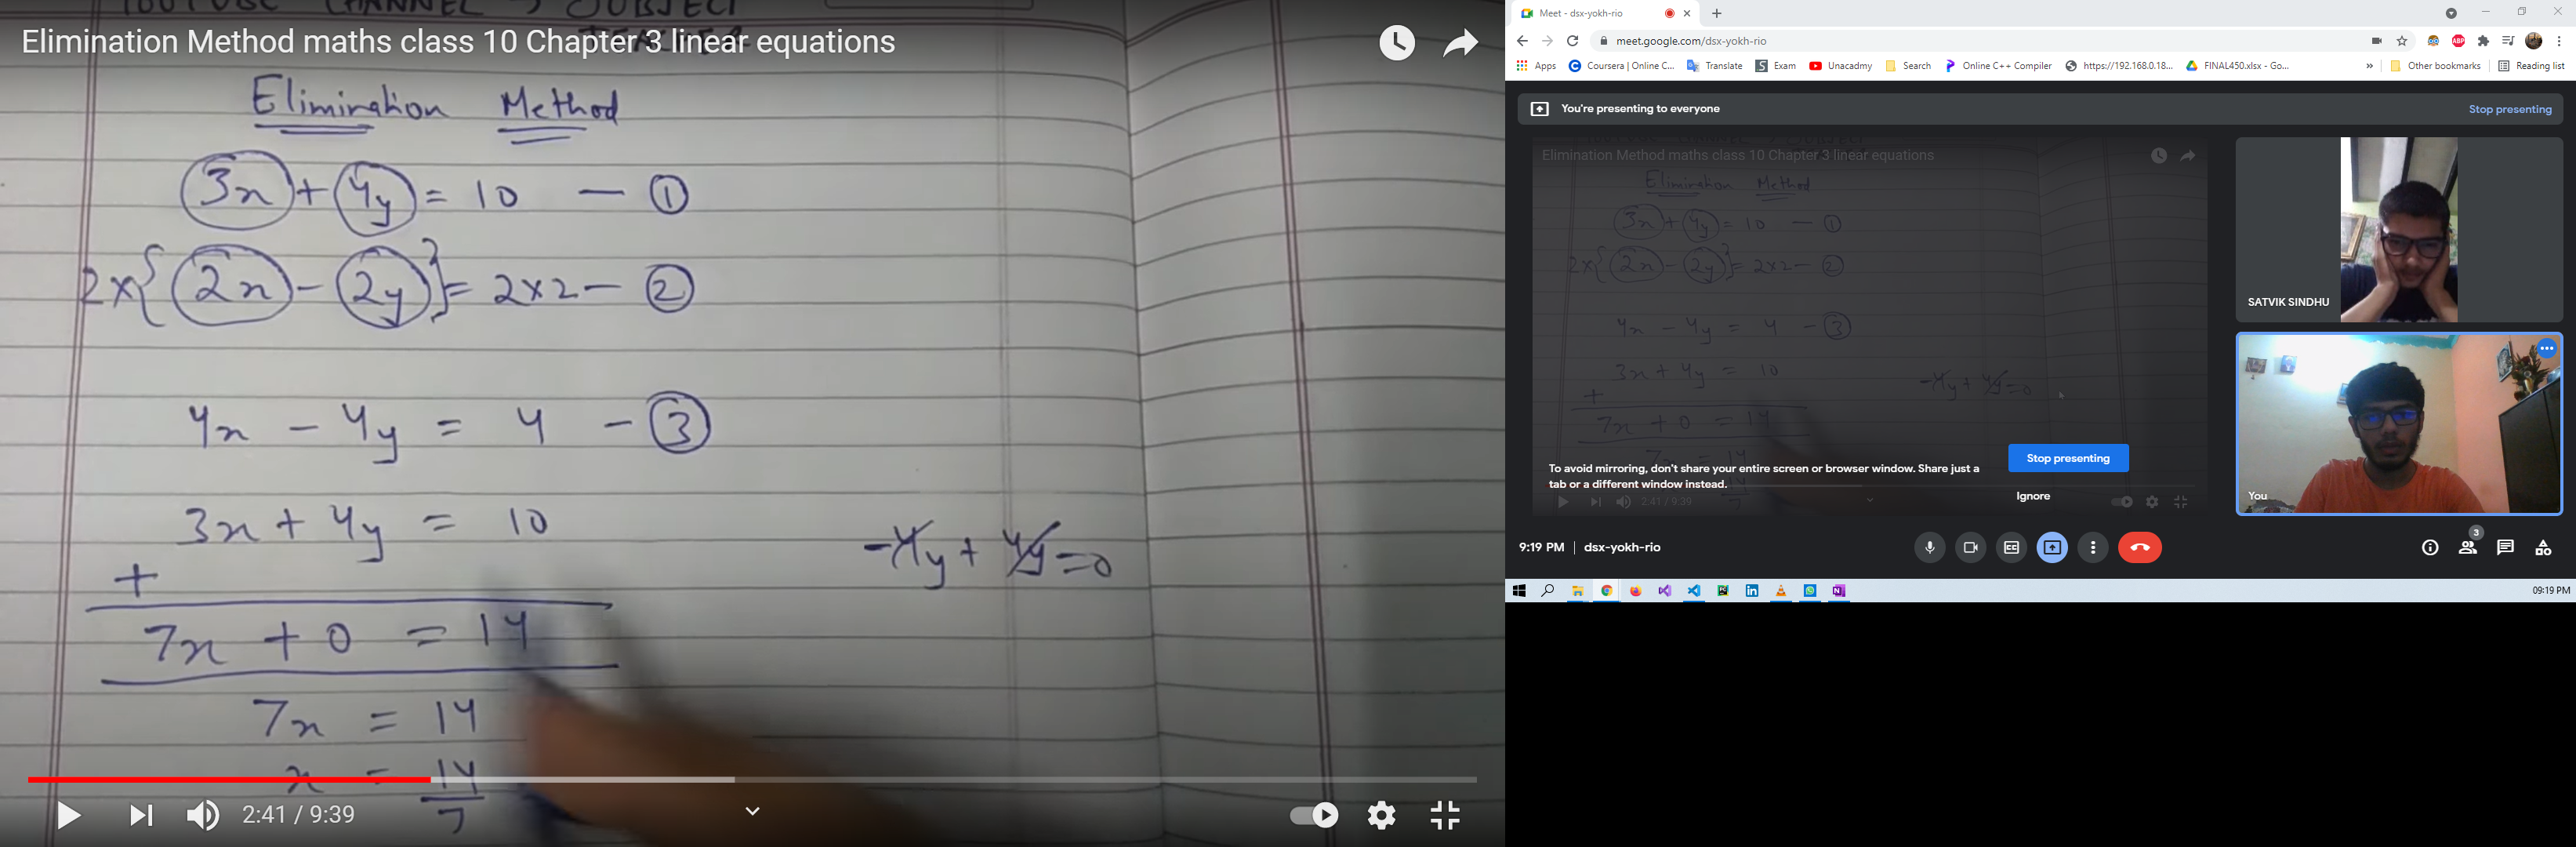 YOUTUBE CHANNEL → SUBJECT
TEACHER
Elimination Method maths class 10 Chapter 3 linear equations
Elimination Method
3x + 4y = 10 — ①
2×{2x - 2y} = 2×2 — ②
4x - 4y = 4 - ③
3x + 4y = 10
-4y + 4y = 0
+
7x + 0 = 14
7x = 14
x = 14
7
2:41 / 9:39
Meet - dsx-yokh-rio
meet.google.com/dsx-yokh-rio
ABP
Apps Coursera | Online C... Translate Exam Unacadmy Search Online C++ Compiler https://192.168.0.18... FINAL450.xlsx - Go... » Other bookmarks Reading list
You're presenting to everyone
Stop presenting
Elimination Method maths class 10 Chapter 3 linear equations
Elimination Method
3x + 4y = 10 — ①
2×{2x - 2y} = 2×2 — ②
4x - 4y = 4 - ③
3x + 4y = 10
-4y + 4y = 0
+
7x + 0 = 14
7x = 14
To avoid mirroring, don't share your entire screen or browser window. Share just a
tab or a different window instead.
Stop presenting
Ignore
2:41 / 9:39
SATVIK SINDHU
You
9:19 PM | dsx-yokh-rio
3
09:19 PM